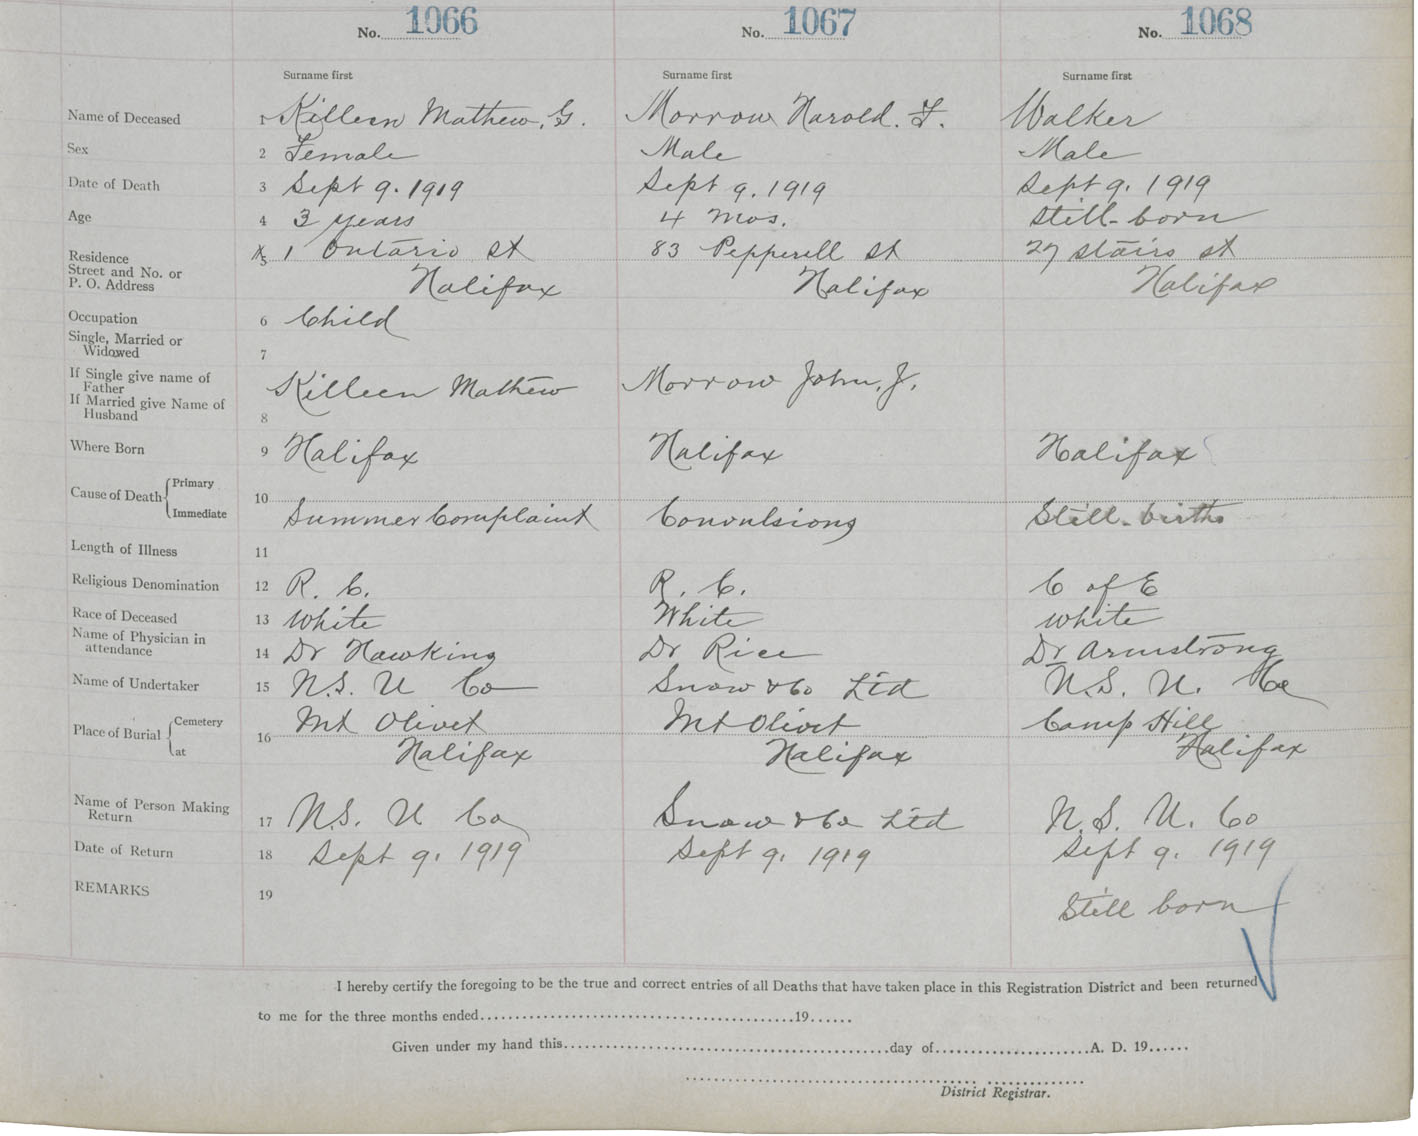 No. 1066 No. 1067 No. 1068
Surname first Surname first Surname first
Name of Deceased 1 Killeen Mathew, G. Morrow Harold. F. Walker
Sex 2 Female Male Male
Date of Death 3 Sept 9. 1919 Sept 9, 1919 Sept 9, 1919
Age 4 3 years 4 mos. Still-born
Residence 5 1 Ontario St 83 Pepperell St 27 Stairs St
Street and No. or
P. O. Address Halifax Halifax Halifax
Occupation 6 Child
Single, Married or
Widowed 7
If Single give name of
Father Killeen Mathew Morrow John, J.
If Married give Name of
Husband 8
Where Born 9 Halifax Halifax Halifax
Cause of Death Primary 10
Immediate Summer Complaint Convulsions Still-birth
Length of Illness 11
Religious Denomination 12 R. C. R. C. C of E
Race of Deceased 13 White White White
Name of Physician in
attendance 14 Dr Hawkins Dr Rice Dr Armstrong
Name of Undertaker 15 N.S. U Co Snow & Co Ltd N.S. U. Co
Place of Burial Cemetery 16 Mt Olivet Mt Olivet Camp Hill
at Halifax Halifax Halifax
Name of Person Making
Return 17 N.S. U Co Snow & Co Ltd N.S. U. Co
Date of Return 18 Sept 9. 1919 Sept 9, 1919 Sept 9. 1919
REMARKS 19 Still born
I hereby certify the foregoing to be the true and correct entries of all Deaths that have taken place in this Registration District and been returned
to me for the three months ended..........19......
Given under my hand this..........day of..........A. D. 19......
District Registrar.